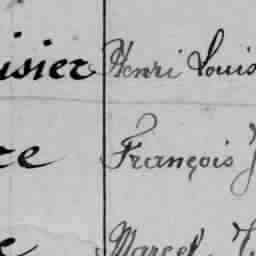 isier Henri Louis
re François J
e Marcel